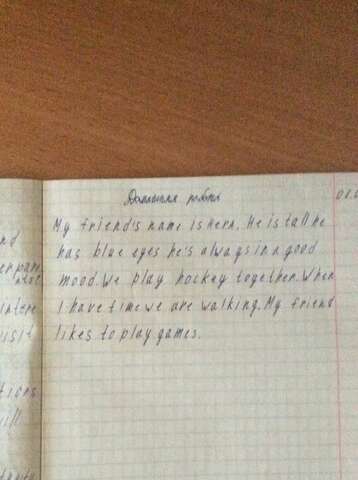 Домашняя работа
01.0
My friend's name is Hern, He is tall he
has blue eyes he's always in a good
mood. We play hockey together. When
I have time we are walking. My friend
likes to play games.
nd
er pare
intere
isit
tions
ill